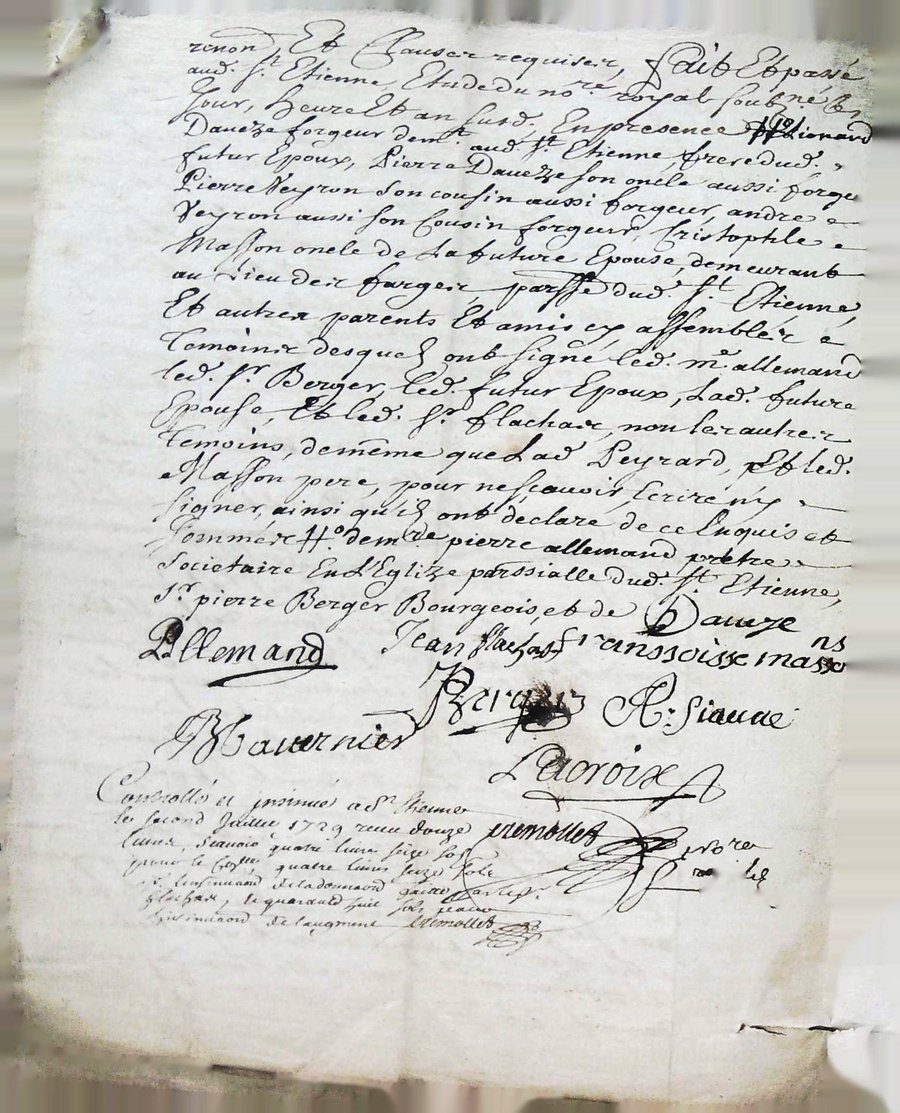 renon, Et Clauses requises, fait Et passé
aud. St. Etienne, Etude du nore. royal soubné les
Jour, heure Et an susd. En presence #o Lionard
Dauezze forgeur demt. aud. St Etienne, frere dud.
futur Epoux, Pierre Dauezze son oncle aussi forgeu
Pierre Veyron son cousin aussi forgeur, andre
Veyron aussi son Cousin forgeur, Cristophle
Masson oncle de La future Epouse, demeurant
au Lieu des farges, parsse dud. St. Etienne,
Et autres parents Et amis ey assembles
Temoins desquels ont signé led. me. allemand
led. sr. Berger, led. futur Epoux, Lad. future
Epouse, Et led. sr. flachat, non les autres
Temoins, de même que Lad Peyrard, Et led.
Masson pere, pour ne sçauoir Ecrire ny
signer, ainsi qu'ils ont declaré de ce Enquis et
sommés #o de mre de pierre allemand prêtre
societaire En L'Eglize parssialle dud. St. Etienne,
sr. pierre Berger Bourgeois, et de Dauezze
P. Allemand Jean flachat franssoisse masson
Berger A. Siauue
Mauernier
Lacroix
Controllé et insinué a St. Etienne
le second Juillet 1729 receu douze
liures, sçauoir quatre liures seize sols
pour le Contle, quatre liures seize sols
flachat, et quarante huit sols pour
insinuaon. de l'augment cremollet
cremollet